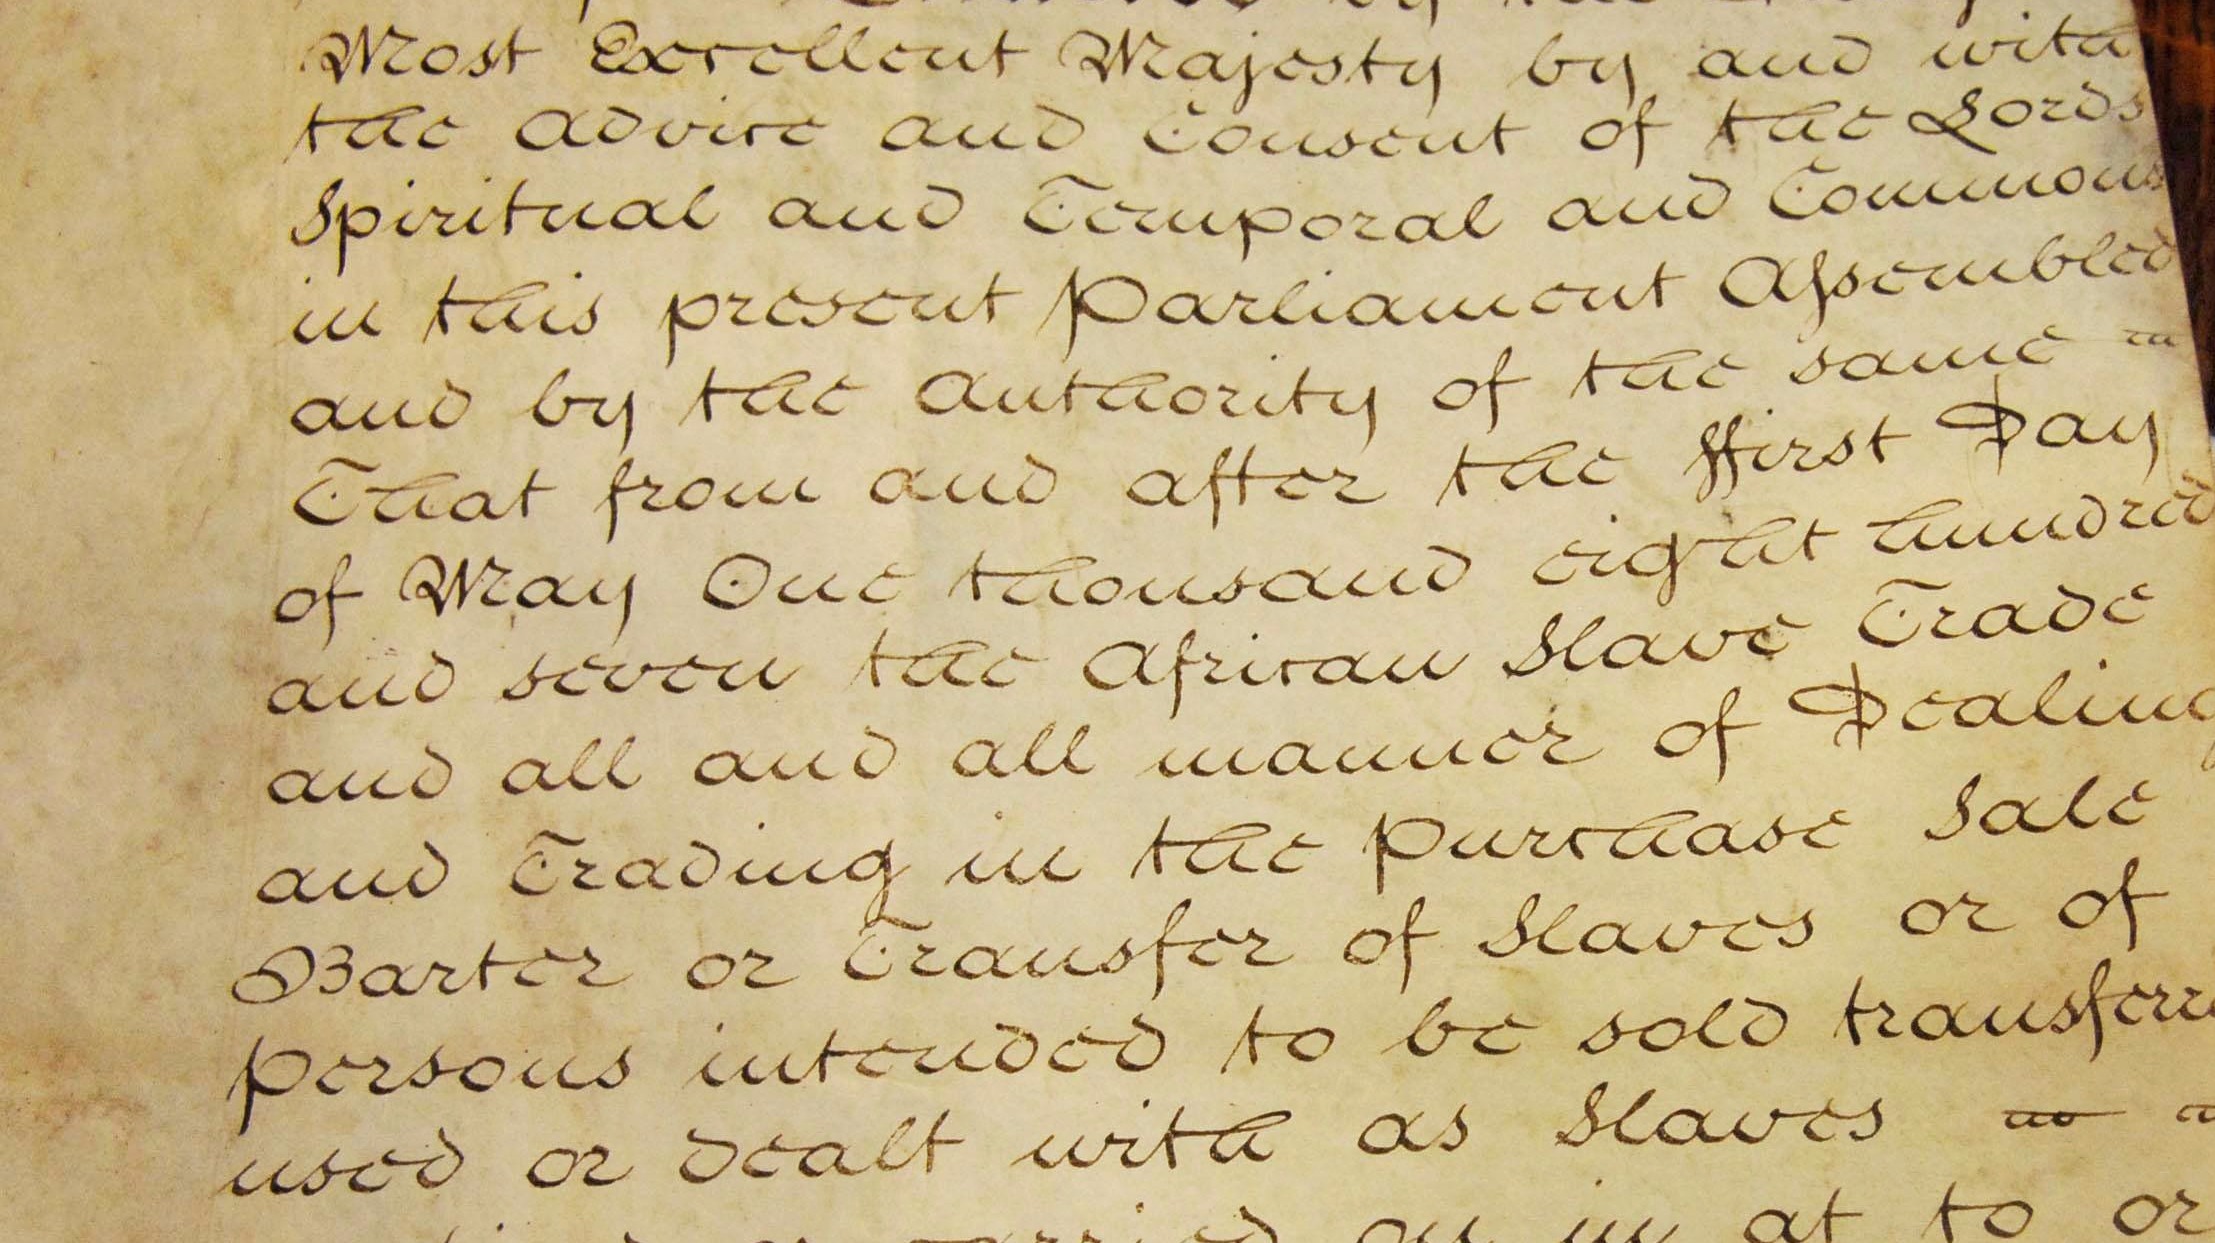 by the
Most Excellent Majesty by and with
the Advice and Consent of the Lords
Spiritual and Temporal and Commons
in this present Parliament Assembled
and by the Authority of the same
That from and after the ffirst Day
of May One thousand eight hundred
and seven the African Slave Trade
and all and all manner of Dealing
and Trading in the Purchase Sale
Barter or Transfer of Slaves or of
Persons intended to be sold transferre
used or dealt with as Slaves
carried on in at to or